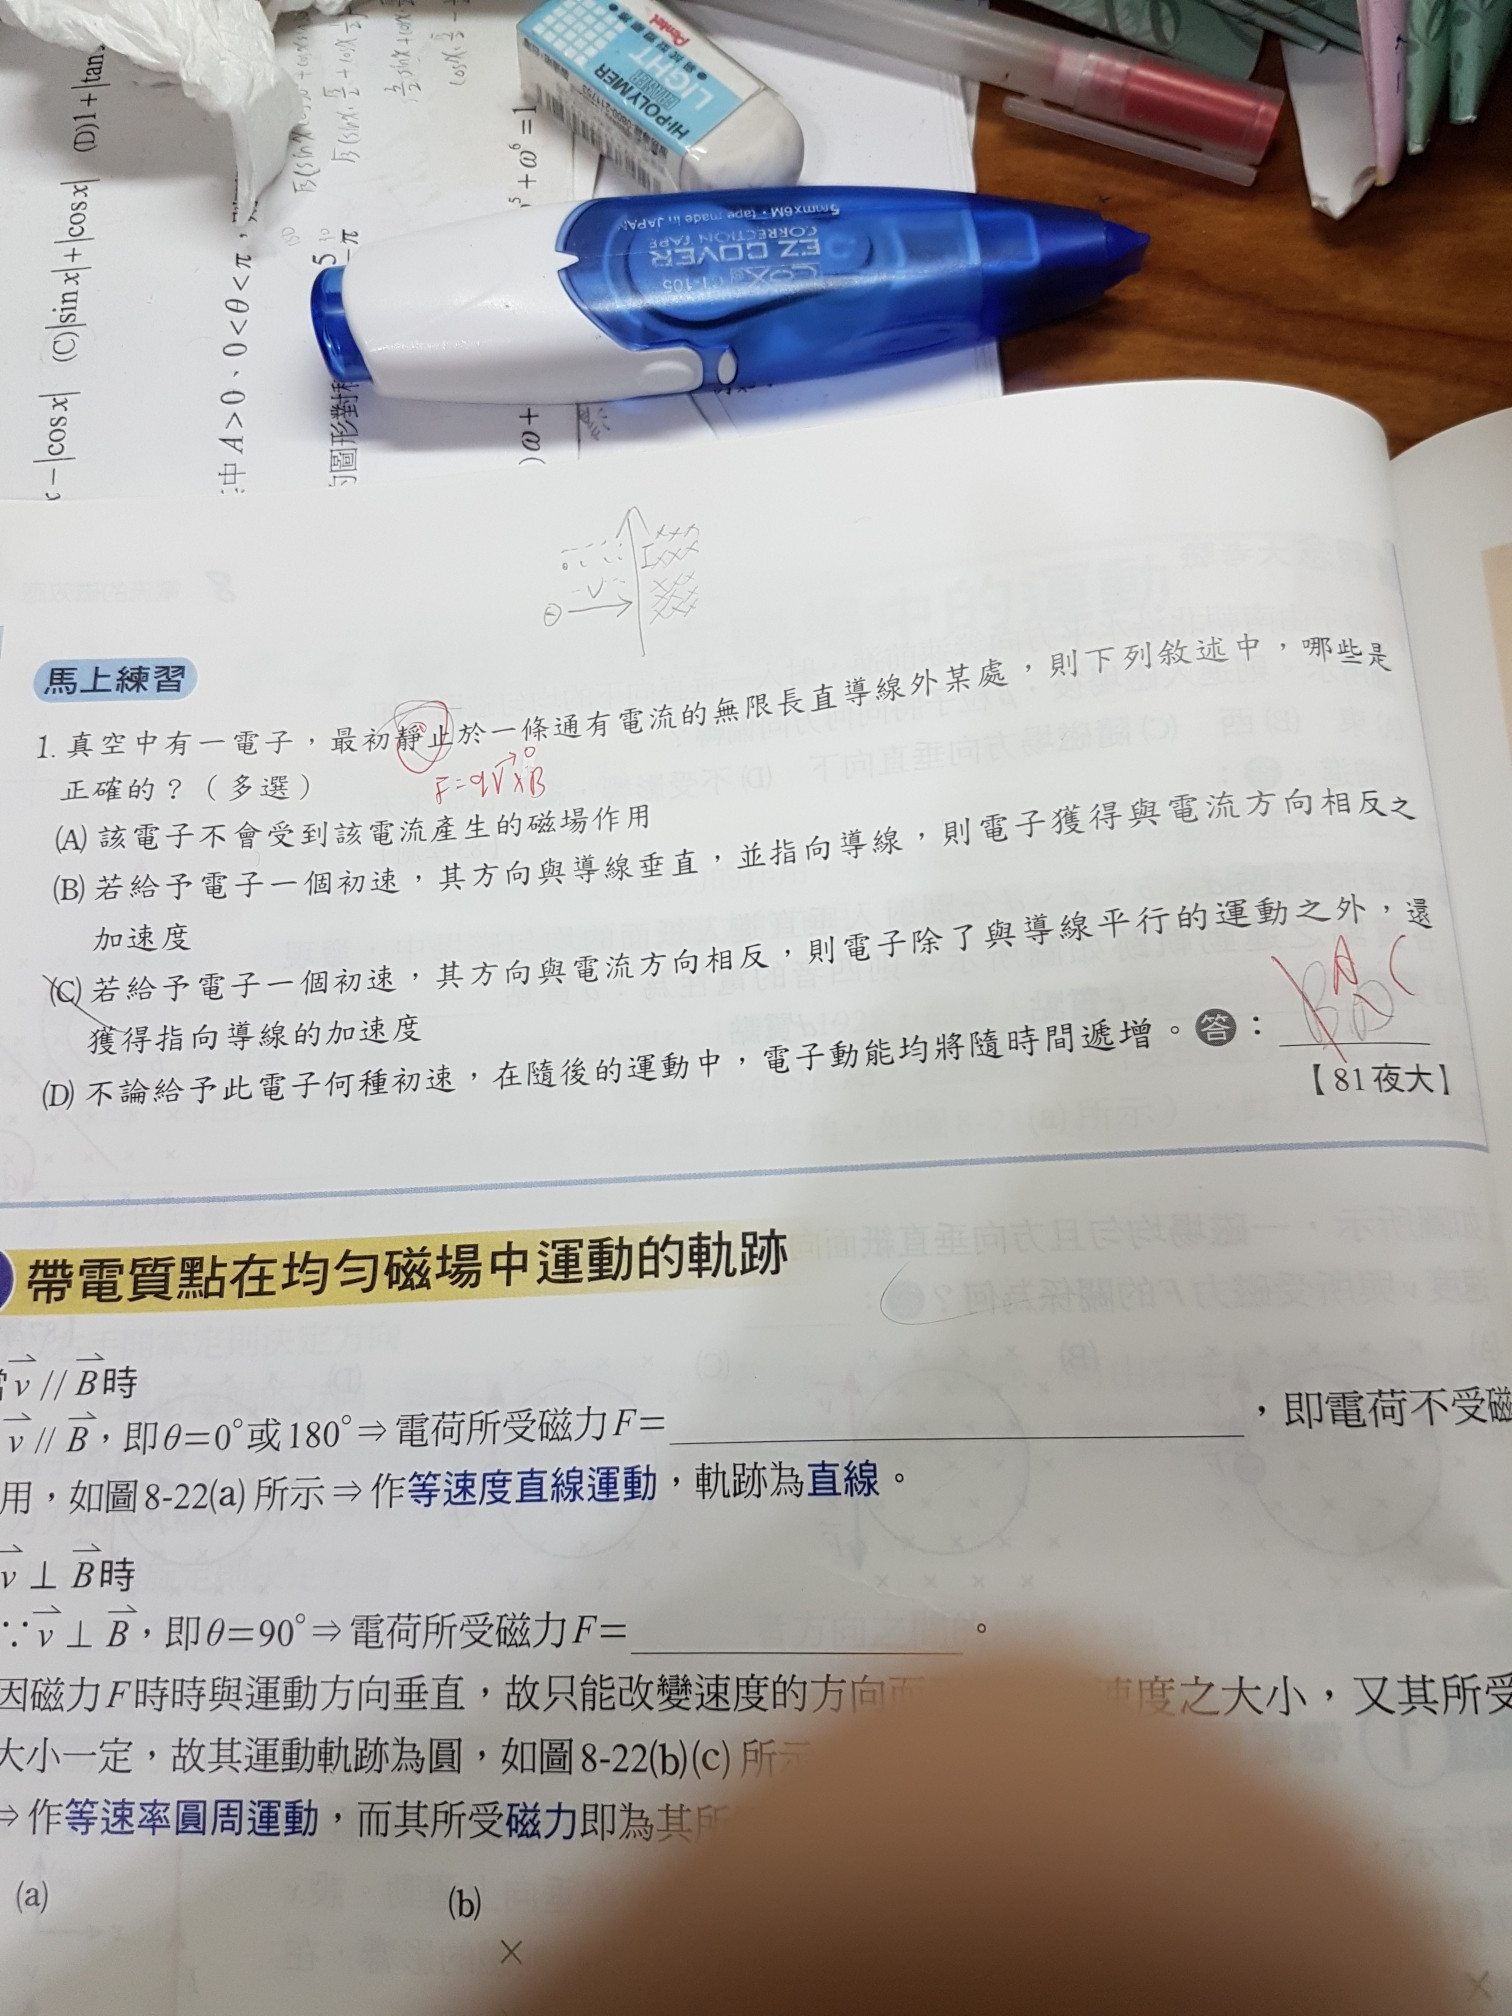 Pentel
HI-POLYMER
LIGHT
ERASER
EZ COVER
CORRECTION TAPE
5mmx6M・tape made in JAPAN
CT-105
−|cosx| (C)|sinx|+|cosx| (D)1+|tan
中A>0、0<θ<π，
圖形對稱
ω⁶=1
I
V
馬上練習
1. 真空中有一電子，最初靜止於一條通有電流的無限長直導線外某處，則下列敘述中，哪些是
正確的？（多選）
F=qv×B
0
(A) 該電子不會受到該電流產生的磁場作用
(B) 若給予電子一個初速，其方向與導線垂直，並指向導線，則電子獲得與電流方向相反之
加速度
(C) 若給予電子一個初速，其方向與電流方向相反，則電子除了與導線平行的運動之外，還
獲得指向導線的加速度
(D) 不論給予此電子何種初速，在隨後的運動中，電子動能均將隨時間遞增。答：
BD
AC
【81夜大】
帶電質點在均勻磁場中運動的軌跡
v // B時
v // B，即θ=0°或180°⇒電荷所受磁力F=，即電荷不受磁
用，如圖8-22(a) 所示⇒作等速度直線運動，軌跡為直線。
v⊥B時
∵v⊥B，即θ=90°⇒電荷所受磁力F=。
因磁力F時時與運動方向垂直，故只能改變速度的方向而 速度之大小，又其所受
大小一定，故其運動軌跡為圓，如圖8-22(b)(c) 所示
⇒作等速率圓周運動，而其所受磁力即為其所
(a)
(b)
×